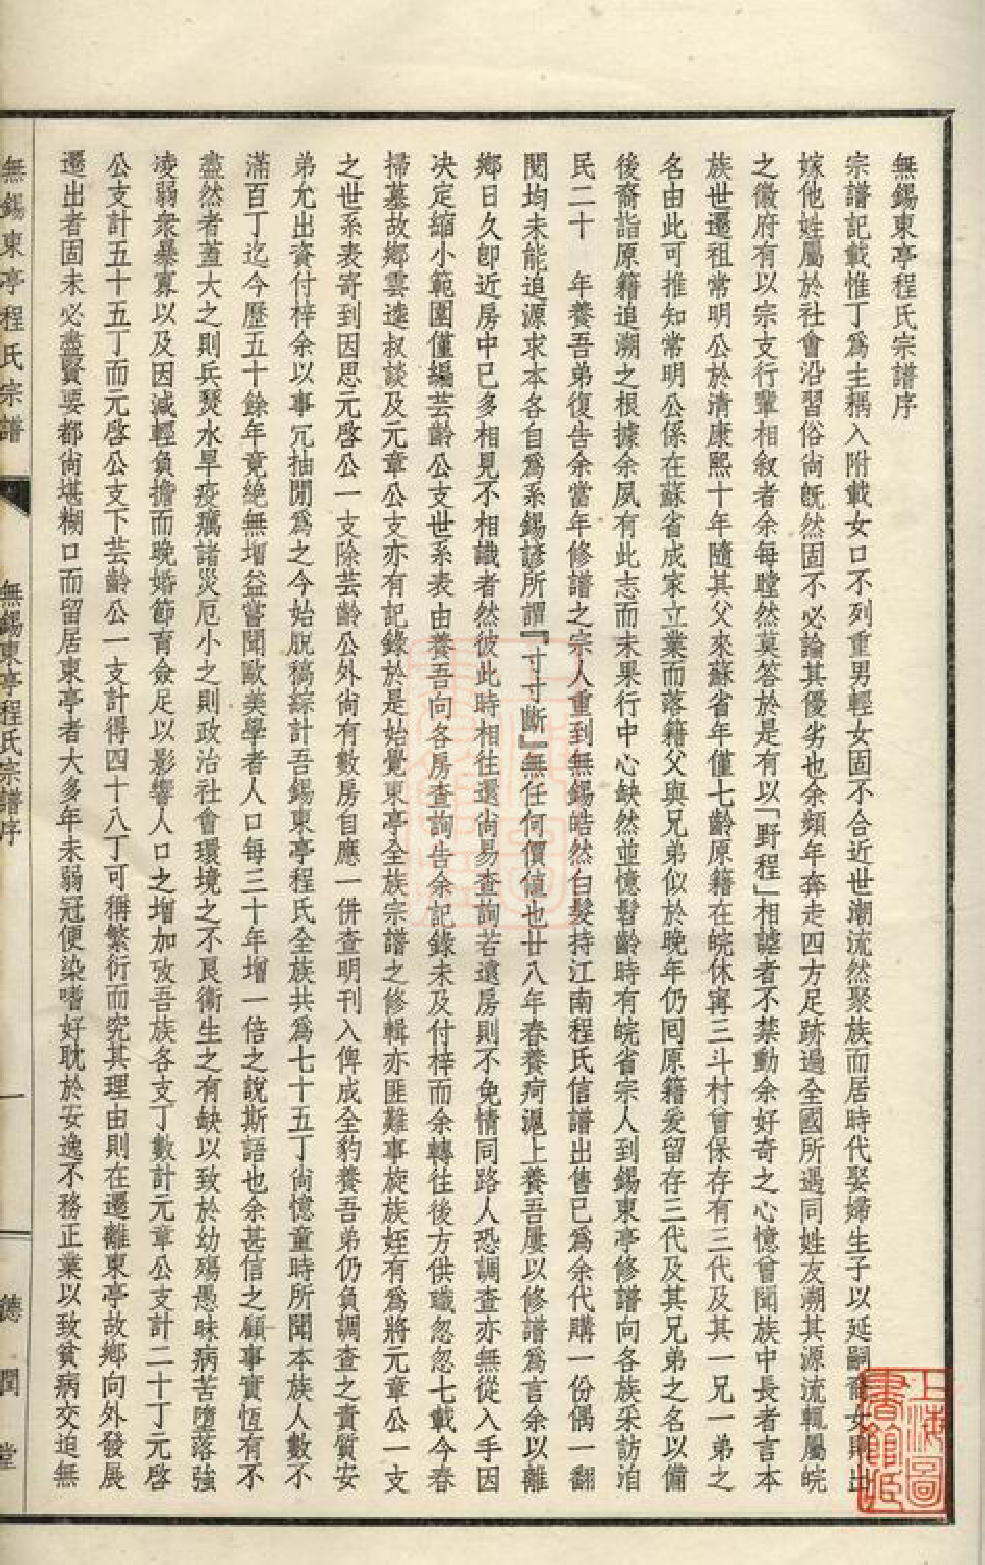 無錫東亭程氏宗譜序
宗譜記載惟丁爲主稱入附載女口不列重男輕女固不合近世潮流然聚族而居時代娶婦生子以延嗣裔女則出
嫁他姓屬於社會沿習俗尙旣然固不必論其優劣也余頻年奔走四方足跡遍全國所遇同姓友溯其源流輒屬皖
之徽府有以宗支行輩相敘者余每瞠然莫答於是有以「野程」相謔者不禁動余好奇之心憶曾聞族中長者言本
族世遷祖常明公於清康熙十年隨其父來蘇省年僅七齡原籍在皖休寧三斗村曾保存有三代及其一兄一弟之
名由此可推知常明公係在蘇省成家立業而落籍父與兄弟似於晚年仍囘原籍爰留存三代及其兄弟之名以備
後裔詣原籍追溯之根據余夙有此志而未果行中心缺然並憶髫齡時有皖省宗人到錫東亭修譜向各族采訪洎
民二十　年養吾弟復告余當年修譜之宗人重到無錫皓然白髮持江南程氏信譜出售已爲余代購一份偶一翻
閱均未能追源求本各自爲系錫諺所謂『寸寸斷』無任何價値也廿八年春養疴滬上養吾屢以修譜爲言余以離
鄉日久卽近房中已多相見不相識者然彼此時相往還尙易查詢若遠房則不免情同路人恐調查亦無從入手因
決定縮小範圍僅編芸齡公支世系表由養吾向各房查詢告余記錄未及付梓而余轉往後方供職忽忽七載今春
掃墓故鄉雲逵叔談及元章公支亦有記錄於是始覺東亭全族宗譜之修輯亦匪難事旋族姪有爲將元章公一支
之世系表寄到因思元啓公一支除芸齡公外尙有數房自應一併查明刊入俾成全豹養吾弟仍負調查之責質安
弟允出資付梓余以事冗抽閒爲之今始脫稿綜計吾錫東亭程氏全族共爲七十五丁尙憶童時所聞本族人數不
滿百丁迄今歷五十餘年竟絕無增益嘗聞歐美學者人口每三十年增一倍之說斯語也余甚信之顧事實恆有不
盡然者蓋大之則兵燹水旱疫癘諸災厄小之則政治社會環境之不良衛生之有缺以致於幼殤愚昧病苦墮落強
凌弱衆暴寡以及因減輕負擔而晚婚節育僉足以影響人口之增加攷吾族各支丁數計元章公支計二十丁元啓
公支計五十五丁而元啓公支下芸齡公一支計得四十八丁可稱繁衍而究其理由則在遷離東亭故鄉向外發展
遷出者固未必盡賢要都尙堪糊口而留居東亭者大多年未弱冠便染嗜好耽於安逸不務正業以致貧病交迫無
無錫東亭程氏宗譜
無錫東亭程氏宗譜序
一
德潤堂
上海圖書館藏